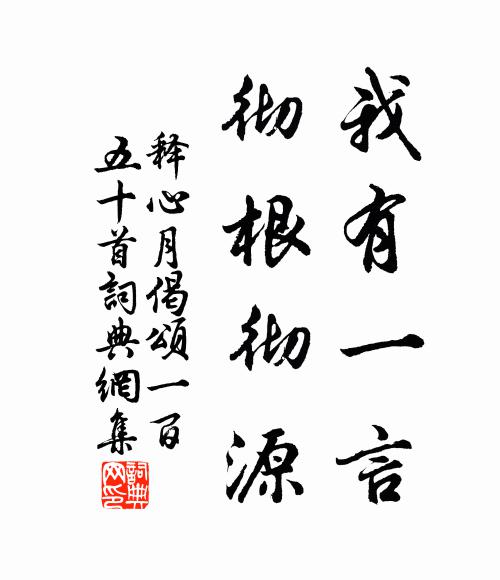 我有一言
彻根彻源
释心月偈頌一百
五十首詞典網集
詞典
网印